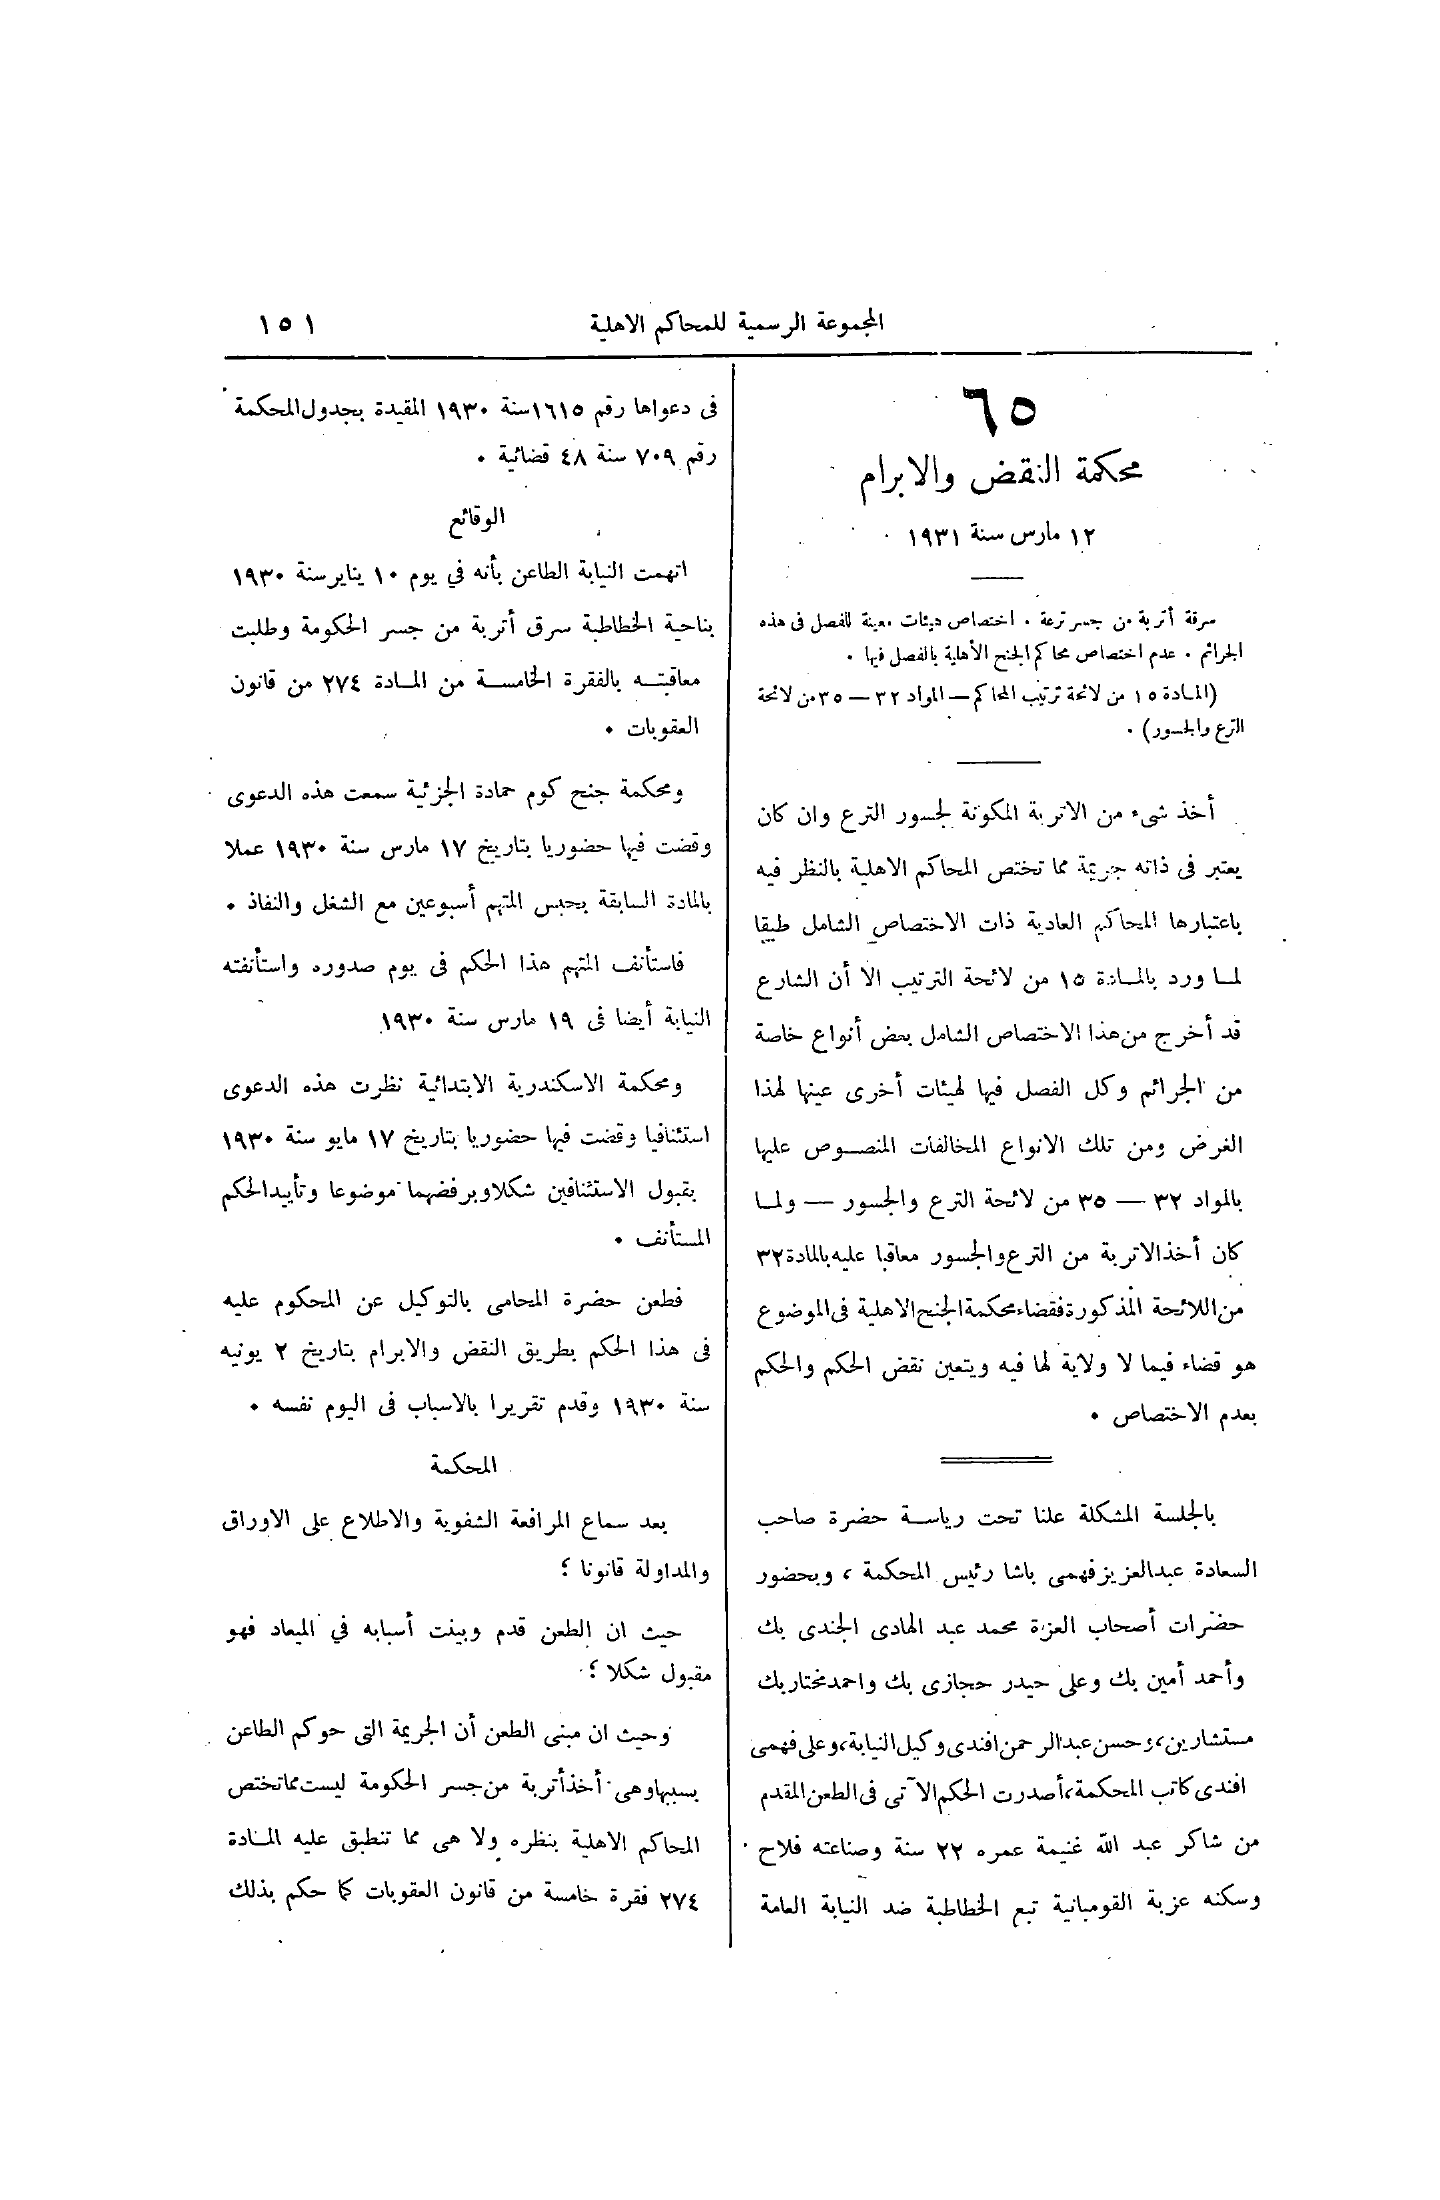 المجموعة الرسمية للمحاكم الاهلية
١٥١
٦٥
محكمة النقض والابرام
١٢ مارس سنة ١٩٣١
سرقة أتربة من جسر ترعة . اختصاص هيئات معينة للفصل فى هذه
الجرائم . عدم اختصاص محاكم الجنح الأهلية بالفصل فيها .
(المادة ١٥ من لائحة ترتيب المحاكم — المواد ٣٢ — ٣٥ من لائحة
الترع والجسور) .
أخذ شىء من الاتربة المكونة لجسور الترع وان كان
يعتبر فى ذاته جريمة مما تختص المحاكم الاهلية بالنظر فيه
باعتبارها المحاكم العادية ذات الاختصاص الشامل طبقا
لما ورد بالمادة ١٥ من لائحة الترتيب الا أن الشارع
قد أخرج من هذا الاختصاص الشامل بعض أنواع خاصة
من الجرائم وكل الفصل فيها لهيئات أخرى عينها لهذا
الغرض ومن تلك الانواع المخالفات المنصوص عليها
بالمواد ٣٢ — ٣٥ من لائحة الترع والجسور — ولما
كان أخذ الاتربة من الترع والجسور معاقبا عليه بالمادة ٣٢
من اللائحة المذكورة فقضاء محكمة الجنح الاهلية فى الموضوع
هو قضاء فيما لا ولاية لها فيه ويتعين نقض الحكم والحكم
بعدم الاختصاص .
بالجلسة المشكلة علنا تحت رياسة حضرة صاحب
السعادة عبد العزيز فهمى باشا رئيس المحكمة ، وبحضور
حضرات أصحاب العزة محمد عبد الهادى الجندى بك
وأحمد أمين بك وعلى حيدر حجازى بك واحمد مختار بك
مستشارين، وحسن عبد الرحمن افندى وكيل النيابة، وعلى فهمى
افندى كاتب المحكمة، أصدرت الحكم الآتى فى الطعن المقدم
من شاكر عبد الله غنيمة عمره ٢٢ سنة وصناعته فلاح
وسكنه عزبة القومبانية تبع الخطاطبة ضد النيابة العامة
فى دعواها رقم ١٦١٥ سنة ١٩٣٠ المقيدة بجدول المحكمة
رقم ٧٠٩ سنة ٤٨ قضائية .
الوقائع
اتهمت النيابة الطاعن بأنه في يوم ١٠ يناير سنة ١٩٣٠
بناحية الخطاطبة سرق أتربة من جسر الحكومة وطلبت
معاقبته بالفقرة الخامسة من المادة ٢٧٤ من قانون
العقوبات .
ومحكمة جنح كوم حمادة الجزئية سمعت هذه الدعوى
وقضت فيها حضوريا بتاريخ ١٧ مارس سنة ١٩٣٠ عملا
بالمادة السابقة بحبس المتهم أسبوعين مع الشغل والنفاذ .
فاستأنف المتهم هذا الحكم فى يوم صدوره واستأنفته
النيابة أيضا فى ١٩ مارس سنة ١٩٣٠
ومحكمة الاسكندرية الابتدائية نظرت هذه الدعوى
استئنافيا وقضت فيها حضوريا بتاريخ ١٧ مايو سنة ١٩٣٠
بقبول الاستئنافين شكلا وبرفضهما موضوعا وتأييد الحكم
المستأنف .
فطعن حضرة المحامى بالتوكيل عن المحكوم عليه
فى هذا الحكم بطريق النقض والابرام بتاريخ ٢ يونيه
سنة ١٩٣٠ وقدم تقريرا بالاسباب فى اليوم نفسه .
المحكمة
بعد سماع المرافعة الشفوية والاطلاع على الاوراق
والمداولة قانونا ؛
حيث ان الطعن قدم وبينت أسبابه في الميعاد فهو
مقبول شكلا ؛
وحيث ان مبنى الطعن أن الجريمة التى حوكم الطاعن
بسببها وهى أخذ أتربة من جسر الحكومة ليست مما تختص
المحاكم الاهلية بنظره ولا هى مما تنطبق عليه المادة
٢٧٤ فقرة خامسة من قانون العقوبات كما حكم بذلك